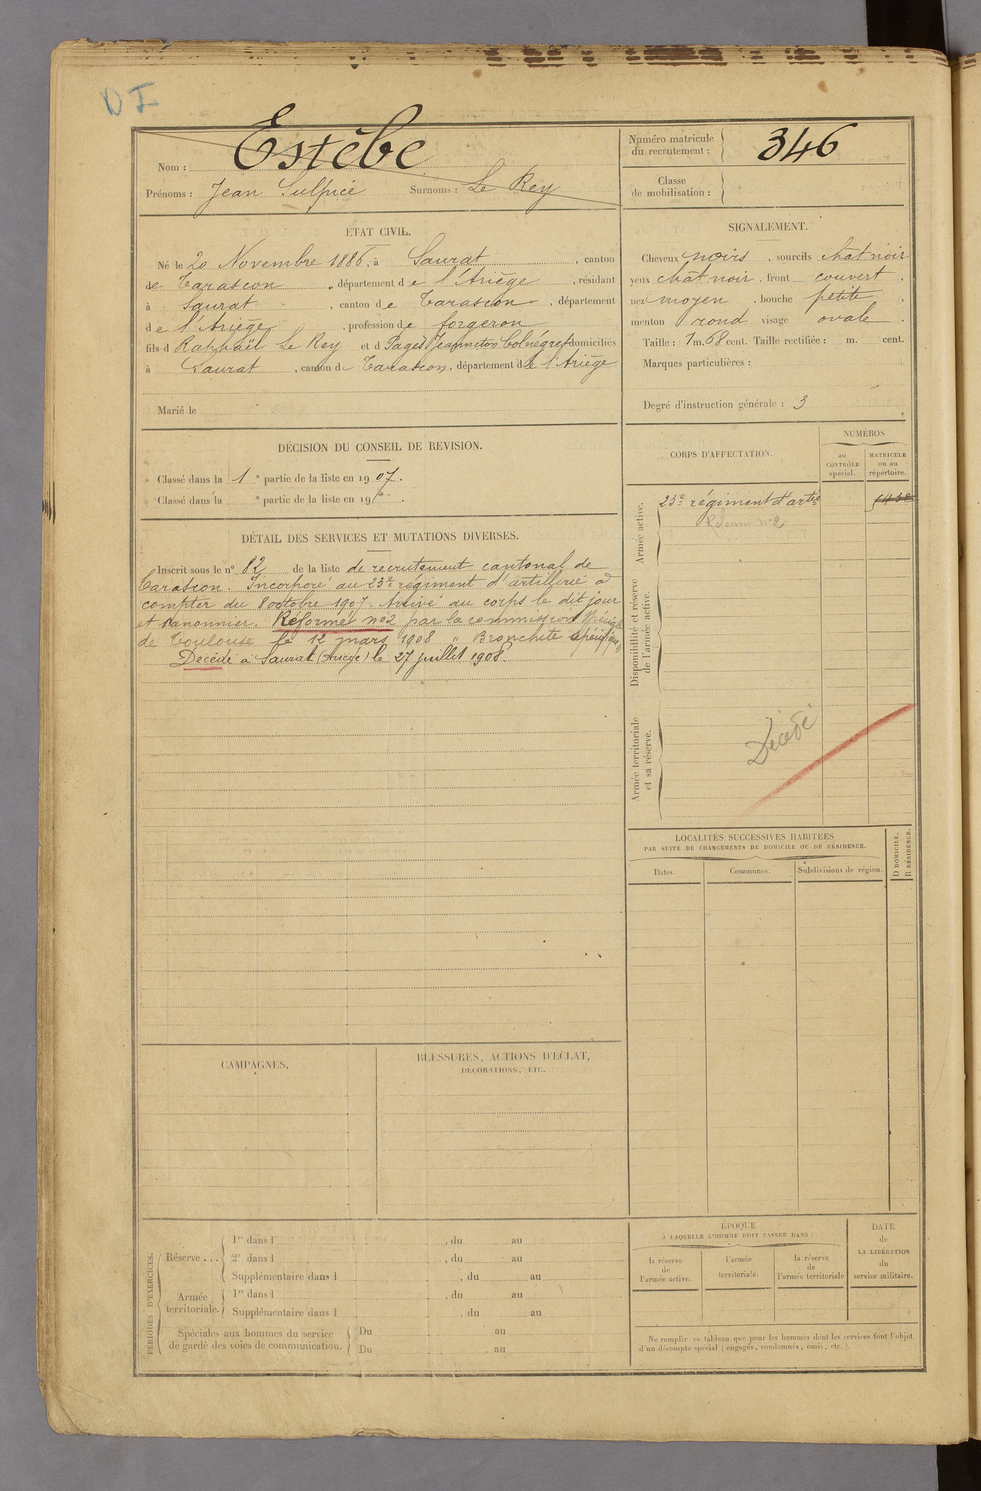 D I
Nom : Estèbe
Prénoms : Jean Sulpice Surnoms : Le Rey
Numéro matricule du recrutement : 346
Classe de mobilisation :
ÉTAT CIVIL.
Né le 20 Novembre 1886, à Saurat, canton
de Tarascon, département de l'Ariège, résidant
à Saurat, canton de Tarascon, département
de l'Ariège, profession de forgeron
fils d Raphaël Le Rey et d Pagès Jeanneton domiciliés
à Saurat, canton de Tarascon, département de l'Ariège
Marié le
SIGNALEMENT.
Cheveux noirs, sourcils chat noir
yeux chat noir, front couvert,
nez moyen, bouche petite,
menton rond visage ovale.
Taille : 1 m. 68 cent. Taille rectifiée : m. cent.
Marques particulières :
Degré d'instruction générale : 3
DÉCISION DU CONSEIL DE REVISION.
Classé dans la 1e partie de la liste en 1907.
Classé dans la e partie de la liste en 19
DÉTAIL DES SERVICES ET MUTATIONS DIVERSES.
Inscrit sous le n° 82 de la liste de recrutement cantonal de
Tarascon. Incorporé au 23e régiment d'artillerie à
compter du 8 octobre 1907. Arrivé au corps le dit jour
et canonnier. Réformé n°2 par la commission
de Toulouse le 12 mars 1908 " Bronchite spécifique "
Décédé à Saurat (Ariège) le 27 juillet 1908.
CORPS D'AFFECTATION.
NUMÉROS
au CONTRÔLE spécial.
MATRICULE ou au répertoire.
Armée active.
23e régiment d'artie
Réformé n°2
Disponibilité et réserve de l'armée active.
Armée territoriale et sa réserve.
Décédé
LOCALITÉS SUCCESSIVES HABITÉES
PAR SUITE DE CHANGEMENTS DE DOMICILE OU DE RÉSIDENCE.
Dates. Communes. Subdivisions de région. D DOMICILE. R RÉSIDENCE.
CAMPAGNES.
BLESSURES, ACTIONS D'ÉCLAT,
DÉCORATIONS, ETC.
PÉRIODES D'EXERCICES.
Réserve ...
1re dans l , du au
2e dans l , du au
Supplémentaire dans l , du au
Armée territoriale.
1re dans l , du au
Supplémentaire dans l , du au
Spéciales aux hommes du service
de garde des voies de communication.
Du au
Du au
ÉPOQUE
À LAQUELLE L'HOMME DOIT PASSER DANS :
la réserve de l'armée active.
l'armée territoriale.
la réserve de l'armée territoriale
DATE
DE
LA LIBÉRATION
du
service militaire.
Ne remplir ce tableau que pour les hommes dont les services font l'objet
d'un décompte spécial (engagés, condamnés, omis, etc.).